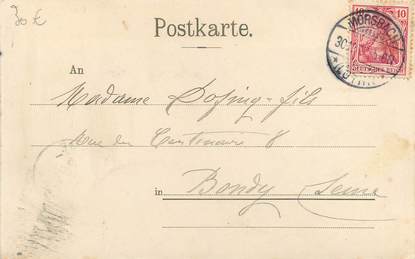 30 €
Postkarte.
10 10
MORSBACH
30
DEUTSCHES REICH
An
Madame Posing-fils
Rue du Centenaire 8
in Bondy Seine